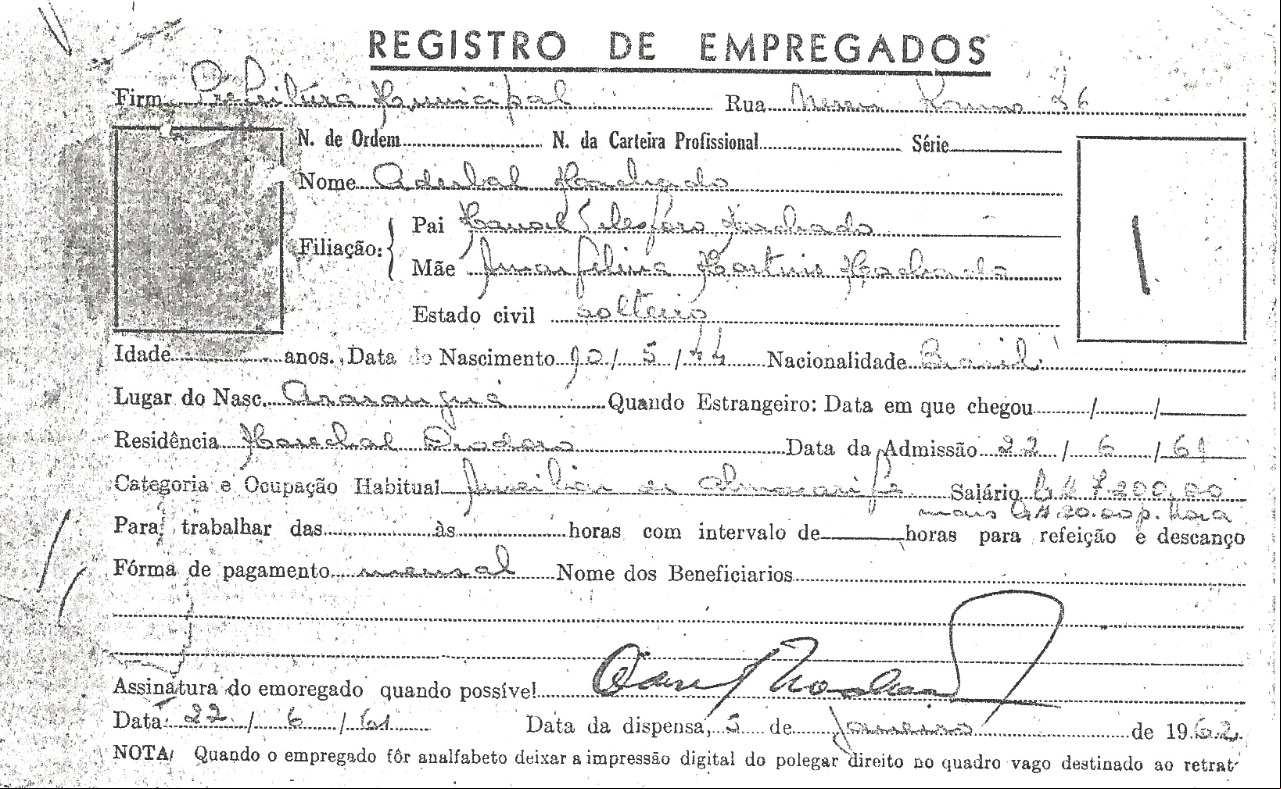 REGISTRO DE EMPREGADOS
Firma Prefeitura Municipal Rua 26
N. de Ordem N. da Carteira Profissional Série
Nome Aderbal Machado
Filiação: Pai Manoel Telesforo Machado
Mãe Martins Machado
Estado civil solteiro
Idade anos. Data do Nascimento / 5 / 44 Nacionalidade Brasil
Lugar do Nasc. Araranguá Quando Estrangeiro: Data em que chegou / /
Residência Marechal Deodoro Data da Admissão 22 / 6 / 61
Categoria e Ocupação Habitual Auxiliar de Almoxarife Salário Cr$ 7.200,00
mais Cr$ 20.00 p. hora
Para trabalhar das às horas com intervalo de horas para refeição e descanço
Fórma de pagamento mensal Nome dos Beneficiarios
Assinatura do emoregado quando possível
Data 22 / 6 / 61 Data da dispensa, 5 de Janeiro de 1962
NOTA/ Quando o empregado fôr analfabeto deixar a impressão digital do polegar direito no quadro vago destinado ao retrat